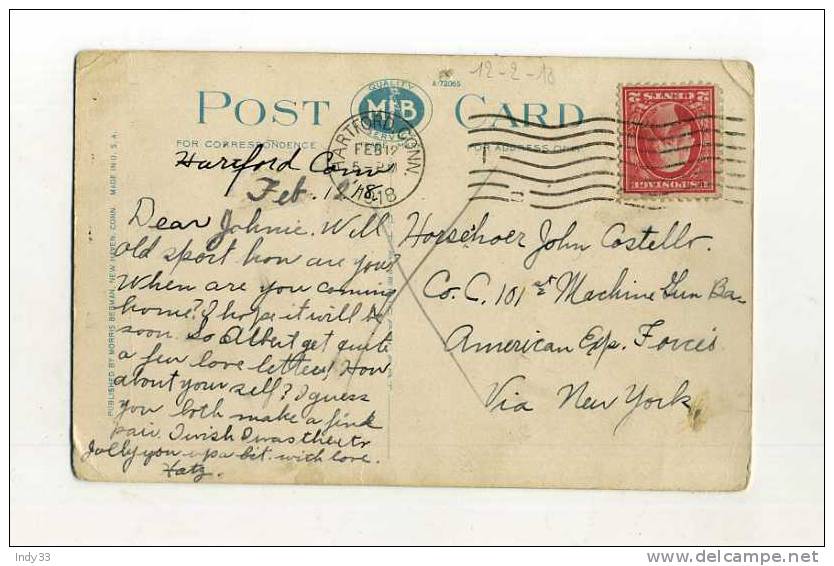 12-2-18
QUALITY
A-72065
POST
M&B
CARD
SERVICE
FOR CORRESPONDENCE
FOR ADDRESS ONLY
HARTFORD CONN
FEB 12
1918
2 CENTS 2
U.S.POSTAGE
Hartford Conn
Feb. 12 '18.
Dear Johnie. Well
old sport how are you?
When are you coming
home? I hope it will be
soon. So Albert get quite
a few love letters! How
about your self? I guess
you both make a fink
pair. I wish I was there to
Jolly you up a bit. with love.
Horseshoer John Costello.
Co. C. 101st Machine Gun Ba-
American Exp. Forces
Via New York.
PUBLISHED BY MORRIS BERMAN, NEW HAVEN, CONN. MADE IN U.S.A.
Indy33
www.delcampe.net